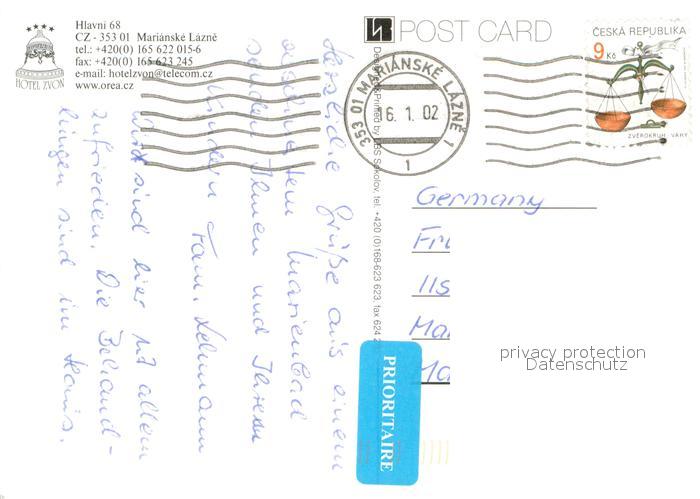 Hlavní 68
CZ - 353 01 Mariánské Lázně
tel.: +420(0) 165 622 015-6
fax: +420(0) 165 623 245
e-mail: hotelzvon@telecom.cz
www.orea.cz
HOTEL ZVON
POST CARD
353 01 MARIÁNSKÉ LÁZNĚ 1
16. 1. 02
1
ČESKÁ REPUBLIKA
9 Kč
ZVĚROKRUH VÁHY
Herzliche Grüße aus einem
Marienbad
senden Ihnen und Ihren
Kindern Fam. Lehmann
Wir sind hier mit allem
zufrieden. Die Behand-
lungen sind im Haus.
Printed by
S Sokolov, tel. +420 (0)168-623 623, fax 624 2
Germany
PRIORITAIRE
privacy protection
Datenschutz